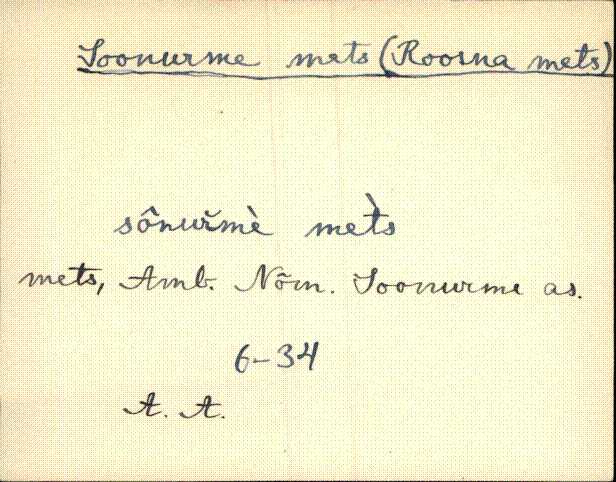 Soonurme mets (Roosna mets)
sônuřmè met̀s
mets, Amb. Nõm. Soonurme as.
6-34
A. A.